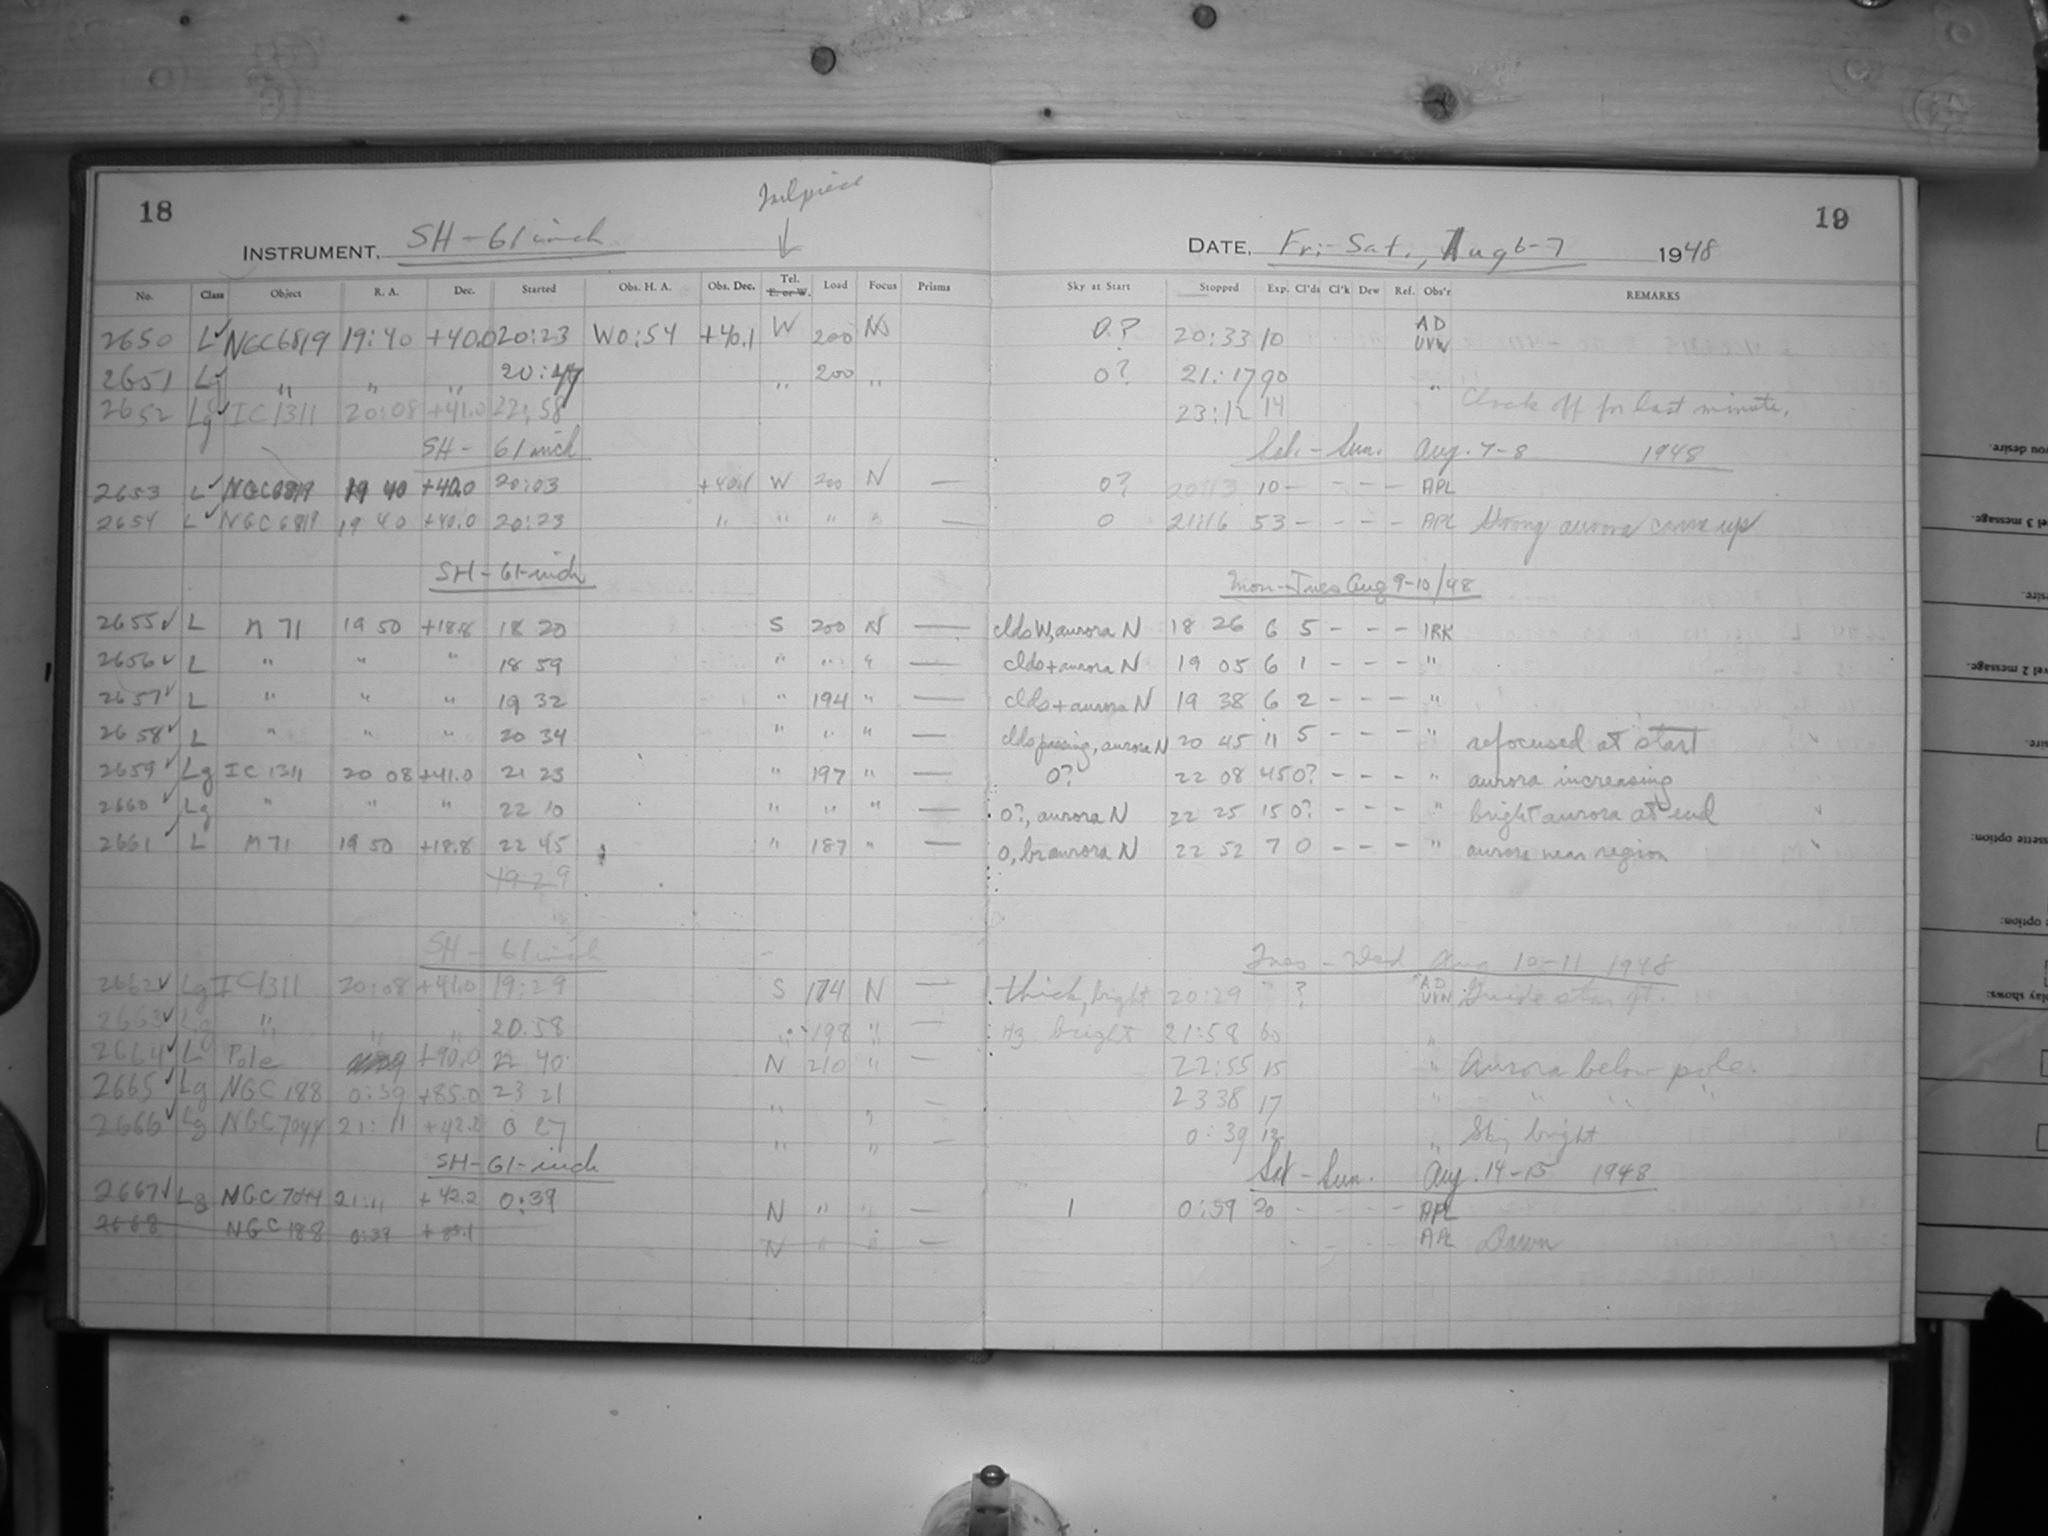 18
Tailpiece
19
INSTRUMENT, SH-61 inch
DATE, Fri-Sat., Aug 6-7 1948
No. Class Object R. A. Dec. Started Obs. H. A. Obs. Dec. Tel. E. or W. Load Focus Prisms Sky at Start Stopped Exp. Cl'ds Cl'k Dew Ref. Obs'r REMARKS
2650 L✓ NGC6819 19:40 +40.0 20:23 W0:54 +40.1 W 200 N 0? 20:33 10 AD UVW
2651 L✓ " " " 20:47 " 200 " 0? 21:17 90 "
2652 Lg✓ IC1311 20:08 +41.0 22:58 23:12 14 Clock off for last minute.
SH- 61 inch Sat.-Sun. Aug. 7-8 1948
2653 L✓ NGC6819 19 40 +40.0 20:03 +40.1 W 200 N — 0? 20:13 10 - - - - APL
2654 L✓ NGC6819 19 40 +40.0 20:23 " " " " — 0 21:16 53 - - - - APL Strong aurora came up
SH-61-inch Mon-Tues Aug 9-10/48
2655✓ L M 71 19 50 +18.8 18 20 S 200 N — clds W, aurora N 18 26 6 5 - - - IRK
2656✓ L " " " 18 59 " " " — clds + aurora N 19 05 6 1 - - - "
2657✓ L " " " 19 32 " 194 " — clds + aurora N 19 38 6 2 - - - "
2658✓ L " " " 20 34 " " " — clds passing, aurora N 20 45 11 5 - - - " refocused at start
2659✓ Lg IC 1311 20 08 +41.0 21 23 " 197 " — 0? 22 08 45 0? - - - " aurora increasing
2660✓ Lg " " " 22 10 " " " — 0?, aurora N 22 25 15 0? - - - " bright aurora at end
2661✓ L M71 19 50 +18.8 22 45 " 187 " — 0, br aurora N 22 52 7 0 - - - " aurora near region
19 29
SH-61 inch Tues-Wed Aug 10-11 1948
2662✓ Lg IC1311 20:08 +41.0 19:29 S 174 N — thick, bright 20:29 " ? AD UVW Guide star ft.
2663✓ Lg " " " 20.58 " 198 " — Hz bright 21:58 60 "
2664✓ L Pole +90.0 22 40 N 210 " — 22:55 15 " Aurora below pole.
2665✓ Lg NGC 188 0:39 +85.0 23 21 " " — 23 38 17 " " " "
2666✓ Lg NGC7044 21:11 +42.2 0 27 " " — 0:39 12 " Sky bright
SH-61-inch Sat-Sun. Aug. 14-15 1948
2667✓ Lg NGC 7044 21:11 +42.2 0:39 N " " — 1 0:59 20 - - - - APL
2668 NGC 188 0:39 +85.1 N " " — - - - - APL Dawn